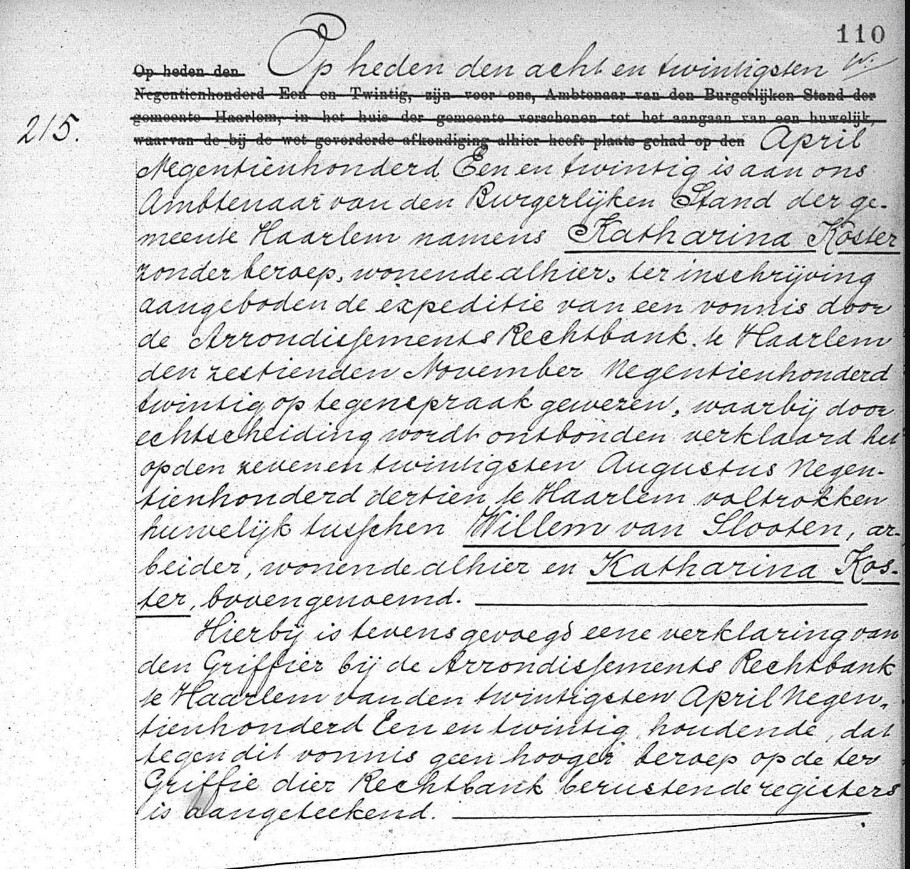 110
Op heden den Op heden den acht en twintigsten
Negentienhonderd Een en Twintig, zijn voor ons, Ambtenaar van den Burgerlijken Stand der
gemeente Haarlem, in het huis der gemeente verschenen tot het aangaan van een huwelijk,
215.
waarvan de bij de wet gevorderde afkondiging alhier heeft plaats gehad op den April
Negentienhonderd Een en twintig is aan ons
Ambtenaar van den Burgerlijken Stand der ge-
meente Haarlem namens Katharina Koster
zonder beroep, wonende alhier, ter inschrijving
aangeboden de expeditie van een vonnis door
de Arrondissements Rechtbank te Haarlem
den zestienden November Negentienhonderd
twintig op tegenspraak gewezen, waarbij door
echtscheiding wordt ontbonden verklaard het
op den zeven en twintigsten Augustus Negen-
tienhonderd dertien te Haarlem voltrokken
huwelijk tusschen Willem van Slooten, ar-
beider, wonende alhier en Katharina Kos-
ter, bovengenoemd.
Hierbij is tevens gevoegd eene verklaring van
den Griffier bij de Arrondissements Rechtbank
te Haarlem van den twintigsten April Negen-
tienhonderd Een en twintig, houdende, dat
tegen dit vonnis geen hooger beroep op de ter
Griffie dier Rechtbank berustende registers
is aangeteekend.